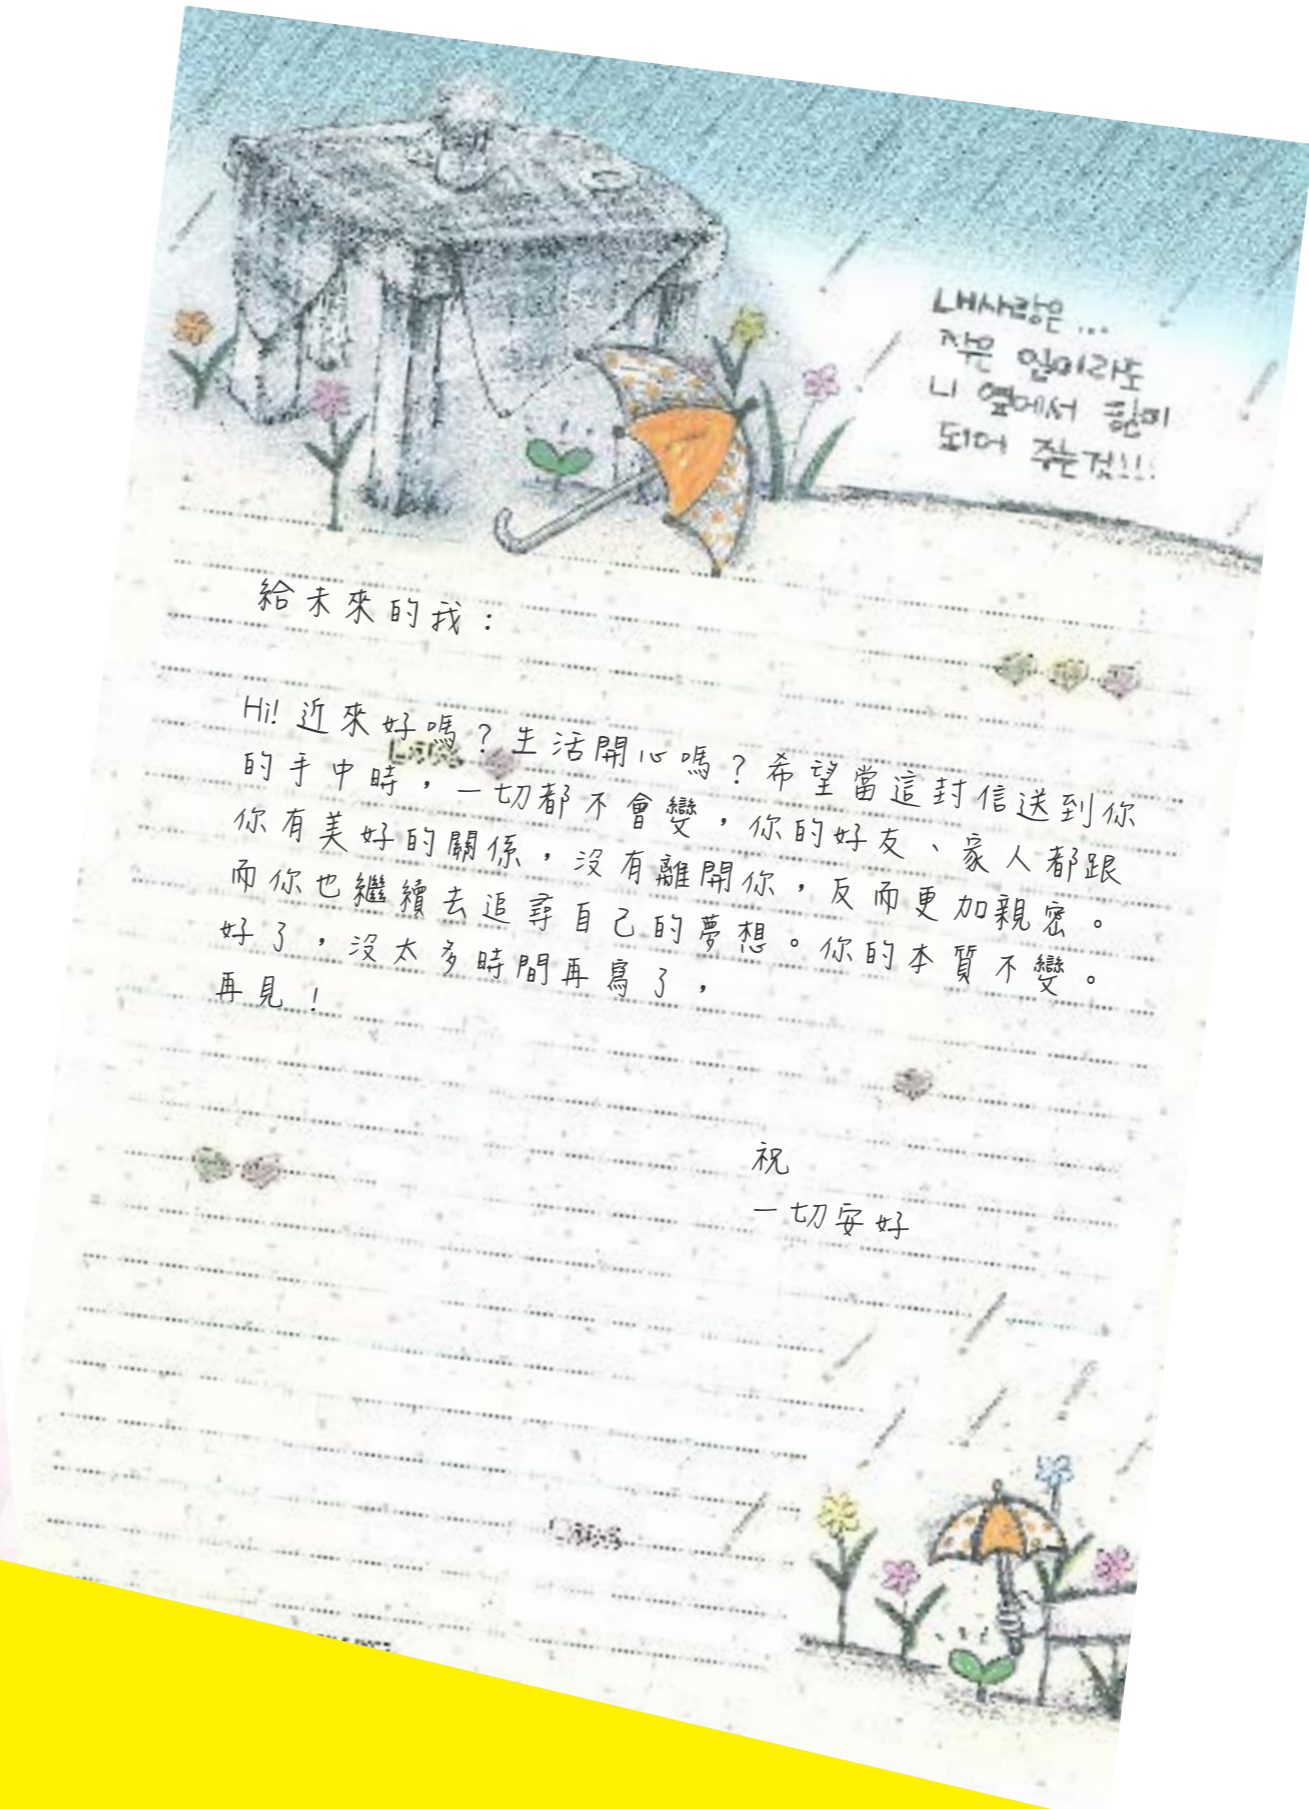 내사랑은...
작은 일이라도
니 옆에서 힘이
되어 주는것!!!
給未來的我：
Hi! 近來好嗎？生活開心嗎？希望當這封信送到你
的手中時，一切都不會變，你的好友、家人都跟
你有美好的關係，沒有離開你，反而更加親密。
而你也繼續去追尋自己的夢想。你的本質不變。
好了，沒太多時間再寫了，
再見！
祝
一切安好